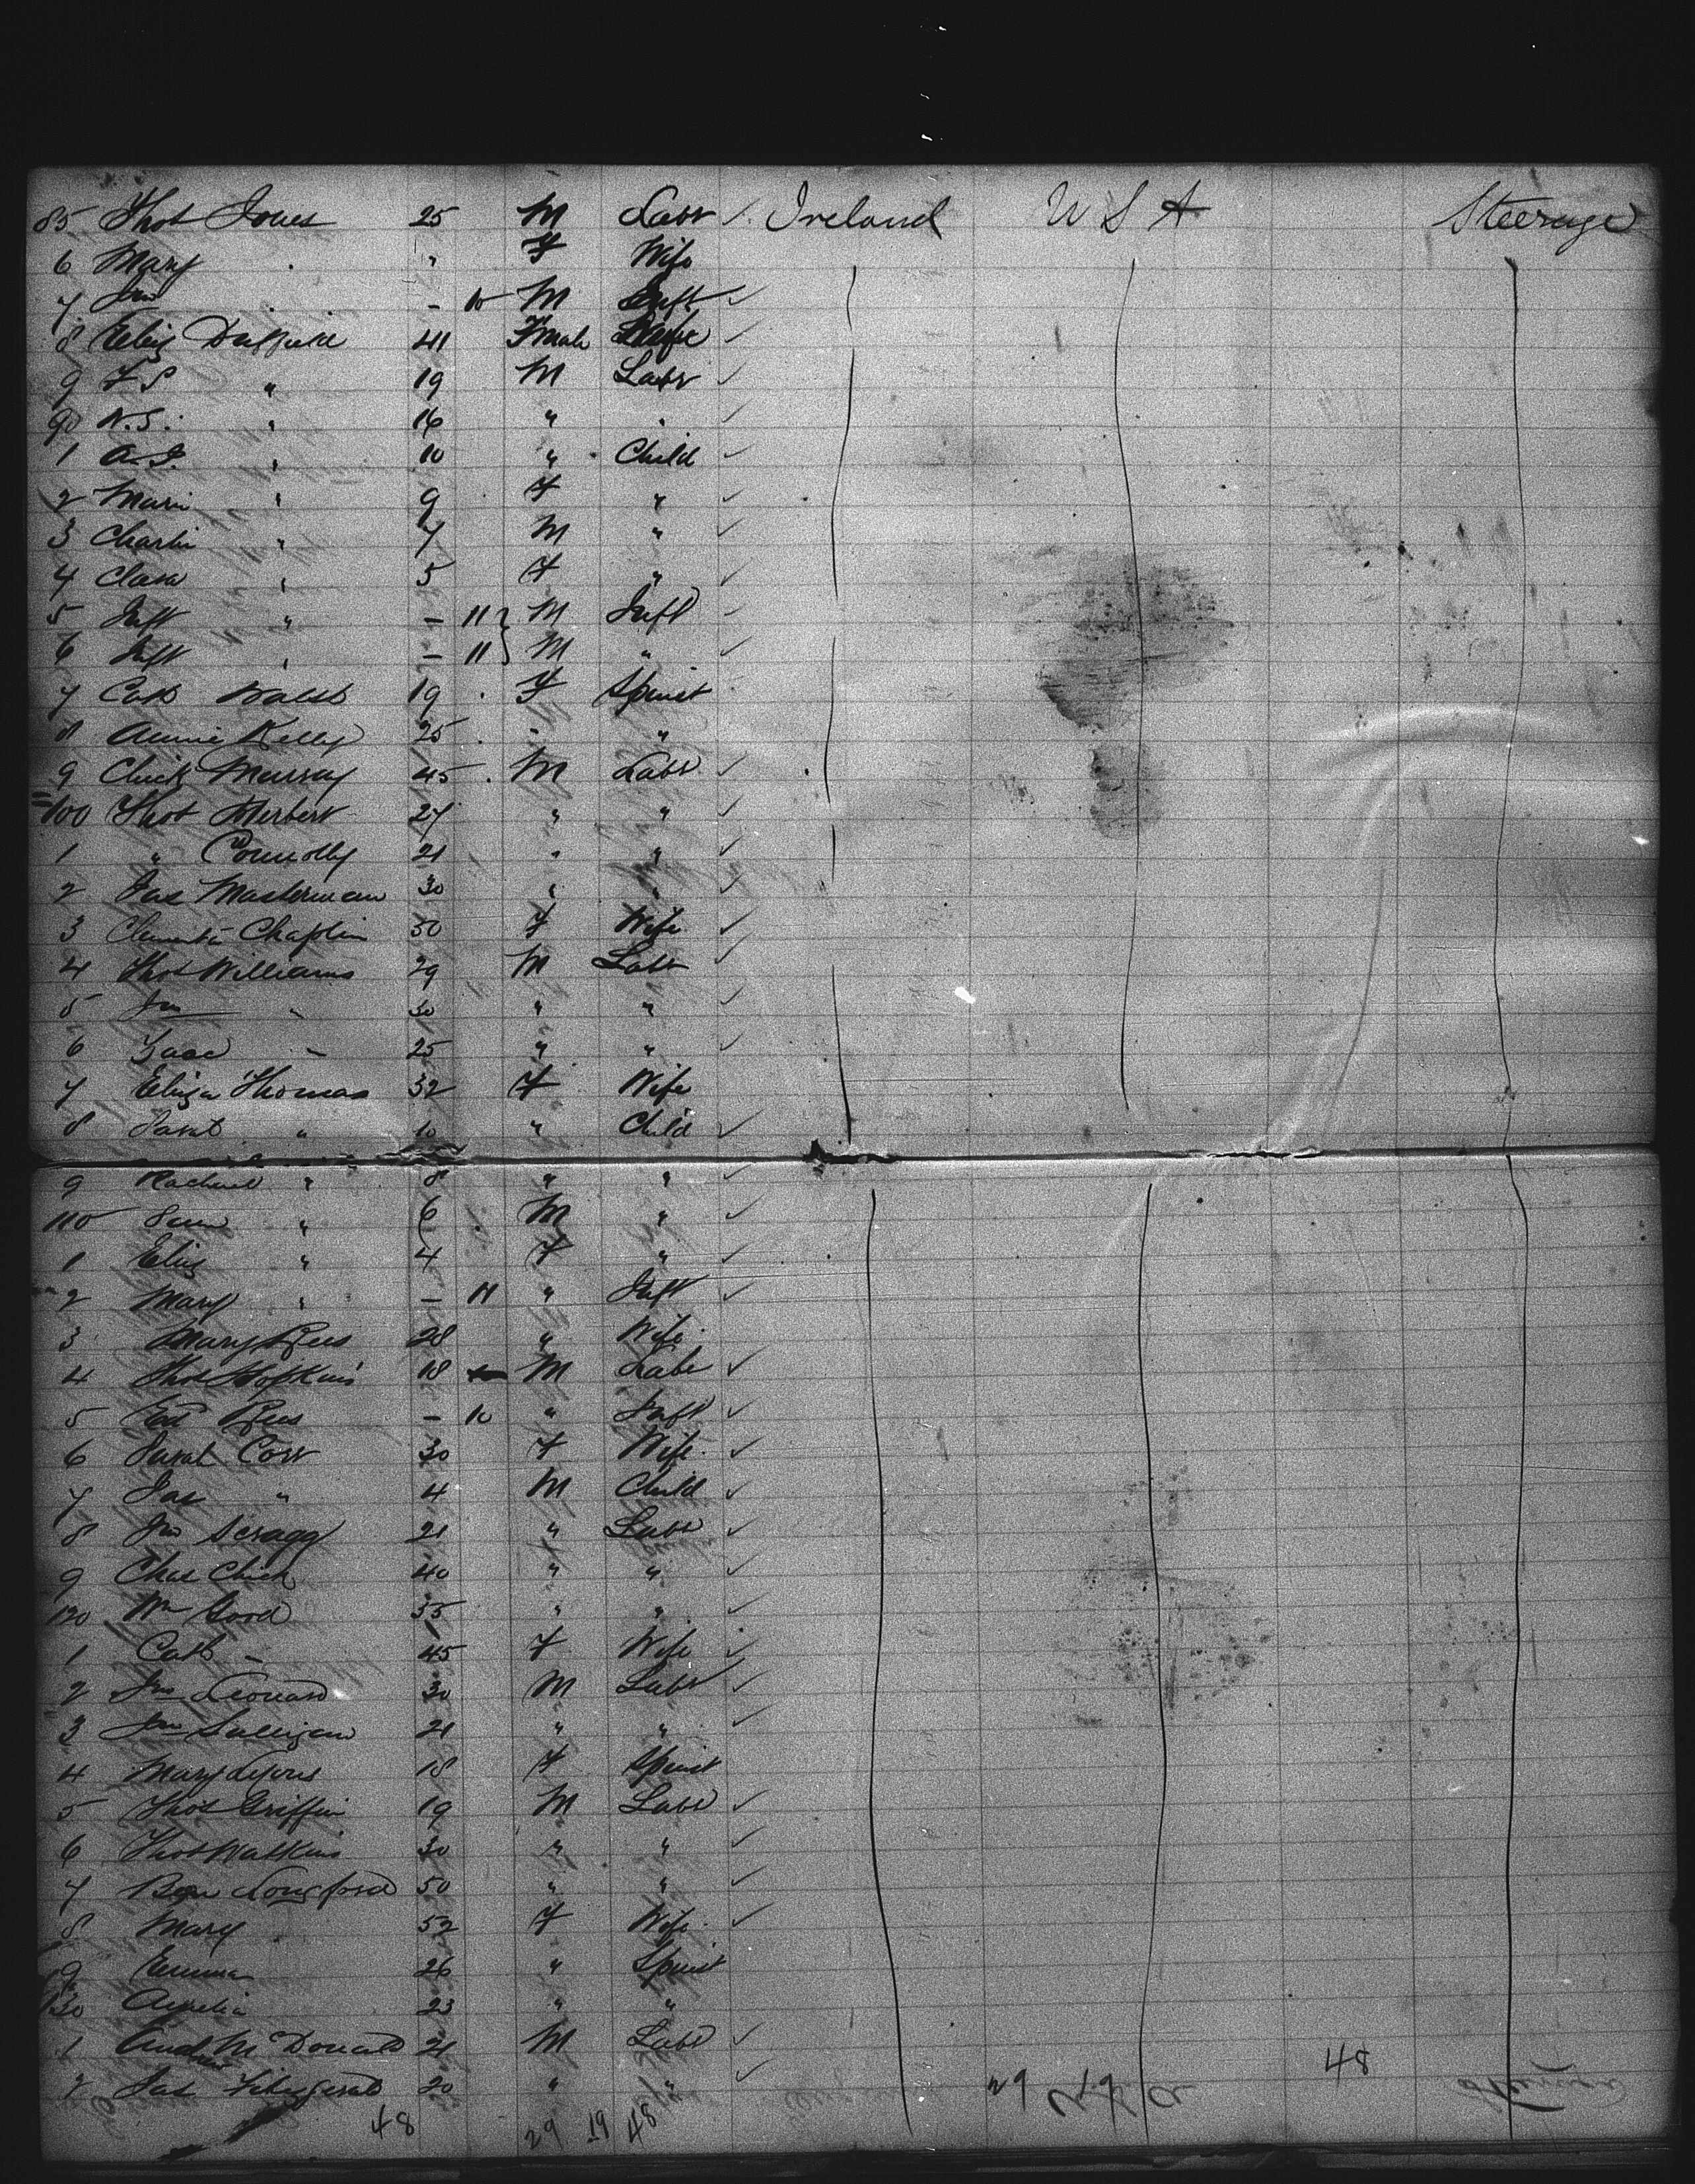 85 Thos Jones 25 M Labr ✓ Ireland U S A Steerage
6 Mary " F Wife
7 Jno - 10 M Inft ✓
8 Eliz Duffield 41 Fmale Wife ✓
9 F S " 19 M Labr ✓
90 W.S. " 16 " " ✓
1 A.J. " 10 " Child ✓
2 Marie " 9 F " ✓
3 Charlie " 7 M " ✓
4 Clara " 5 F " ✓
5 Inft " - 11 } M Inft ✓
6 Inft " - 11 } M " ✓
7 Cath Walsh 19 F Spinst
8 Annie Kelly 25 " "
9 Murray 45 M Labr ✓
100 Thos Herbert 27 " " ✓
1 " Connolly 21 " " ✓
2 Jas Masterman 30 " " ✓
3 Chaplin 30 F Wife ✓
4 Thos Williams 29 M Labr ✓
5 Jno " 30 " " ✓
6 Isaac " 25 " " ✓
7 Eliza Thomas 32 F Wife
8 Sarah " 10 " Child ✓
9 Rachael " 8 " " ✓
110 " 6 M " ✓
1 Eliz " 4 F " ✓
2 Mary " - 11 " Inft ✓
3 Mary Rees 28 " Wife
4 Thos Hopkins 18 M Labr ✓
5 Ed Rees - 10 " Inft ✓
6 Sarah Corr 30 F Wife ✓
7 Jas " 4 M Child ✓
8 Jno Scragg 21 " Labr ✓
9 Chas Chick 40 " " ✓
120 Wm Good 35 " " ✓
1 Cath " 45 F Wife ✓
2 Jno Leonard 30 M Labr ✓
3 Jno Sullivan 21 " " ✓
4 Mary Lyons 18 F Spinst
5 Thos Griffin 19 M Labr ✓
6 Thos Watkins 30 " " ✓
7 Ben Longford 50 " " ✓
8 Mary 52 F Wife ✓
9 Emma 26 " Spinst
130 Amelia 23 " "
1 And McDonald 21 M Labr ✓
2 Jas Fitzgerald 20 " " ✓ 29 48
48 29 19 48